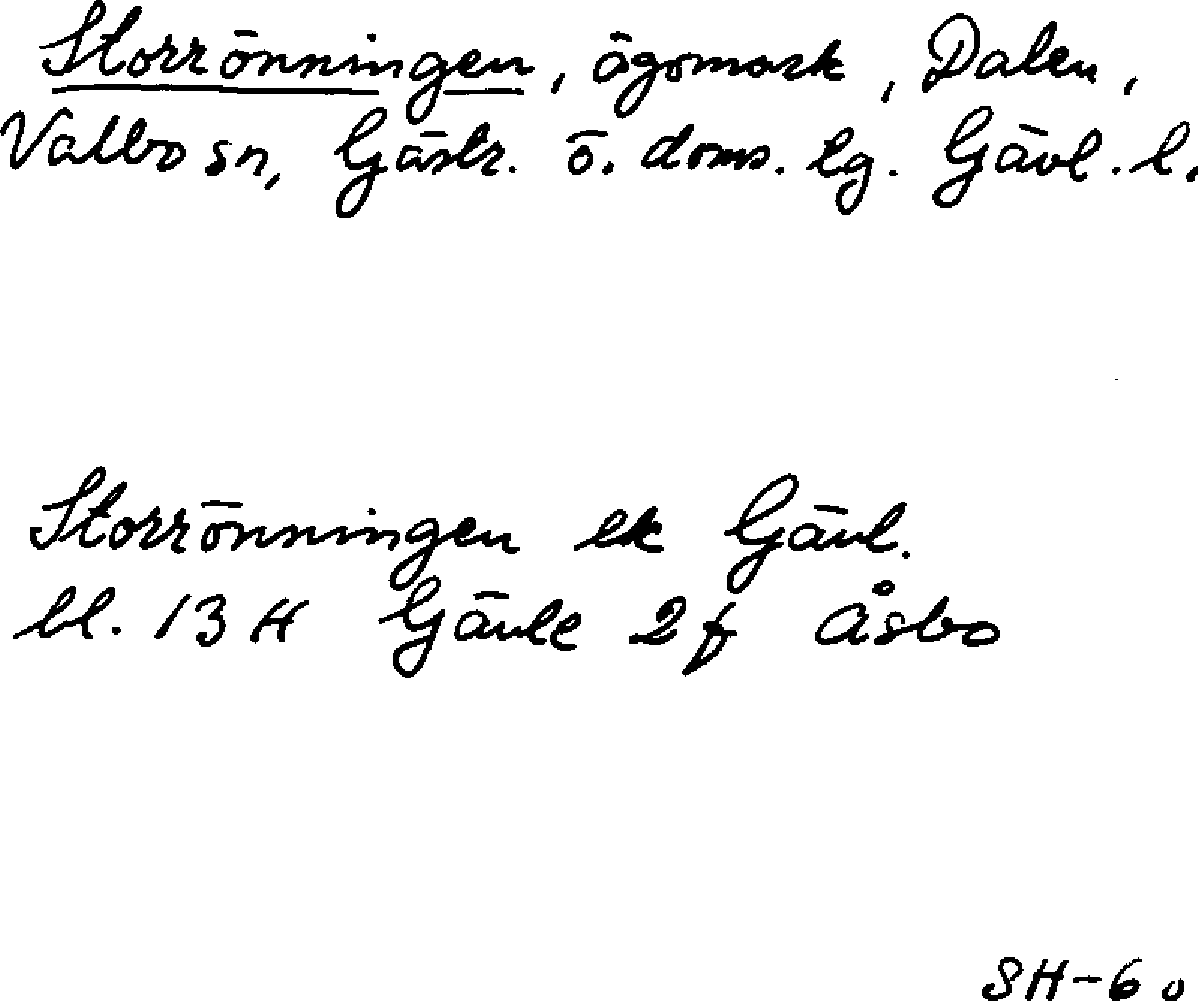 Storrönningen, ägomark, Dalen,
Valbo sn, Gästr. ö. doms. lg. Gävl. l.
Storrönningen ek Gävl.
bl. 13 H Gävle 2 f Åsbo
SH-60